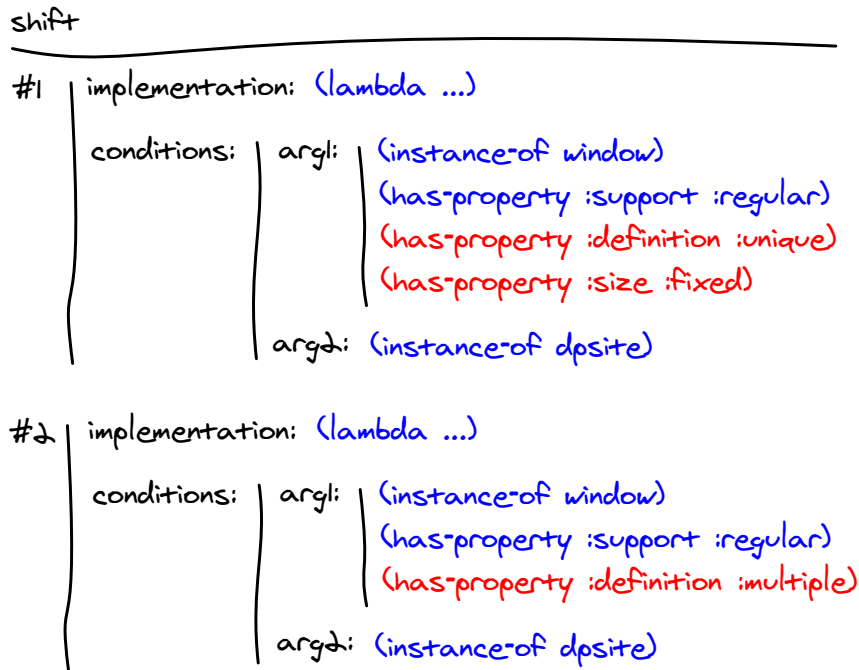 shift
#1 implementation: (lambda ...)
conditions: arg1: (instance-of window)
(has-property :support :regular)
(has-property :definition :unique)
(has-property :size :fixed)
arg2: (instance-of dpsite)
#2 implementation: (lambda ...)
conditions: arg1: (instance-of window)
(has-property :support :regular)
(has-property :definition :multiple)
arg2: (instance-of dpsite)